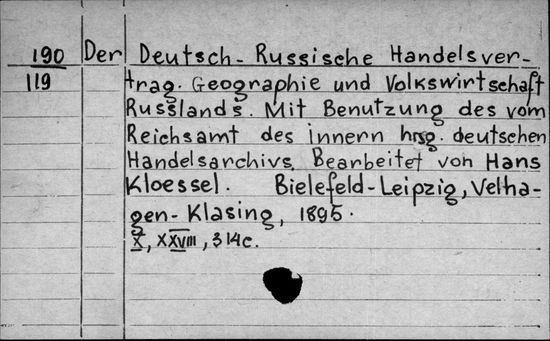 190 Der Deutsch-Russische Handelsver-
119 trag. Geographie und Volkswirtschaft
Russlands. Mit Benutzung des vom
Reichsamt des innern hrsg. deutschen
Handelsarchivs. Bearbeitet von Hans
Kloessel. Bielefeld-Leipzig, Velha-
gen-Klasing, 1895.
X, XXVIII, 314c.